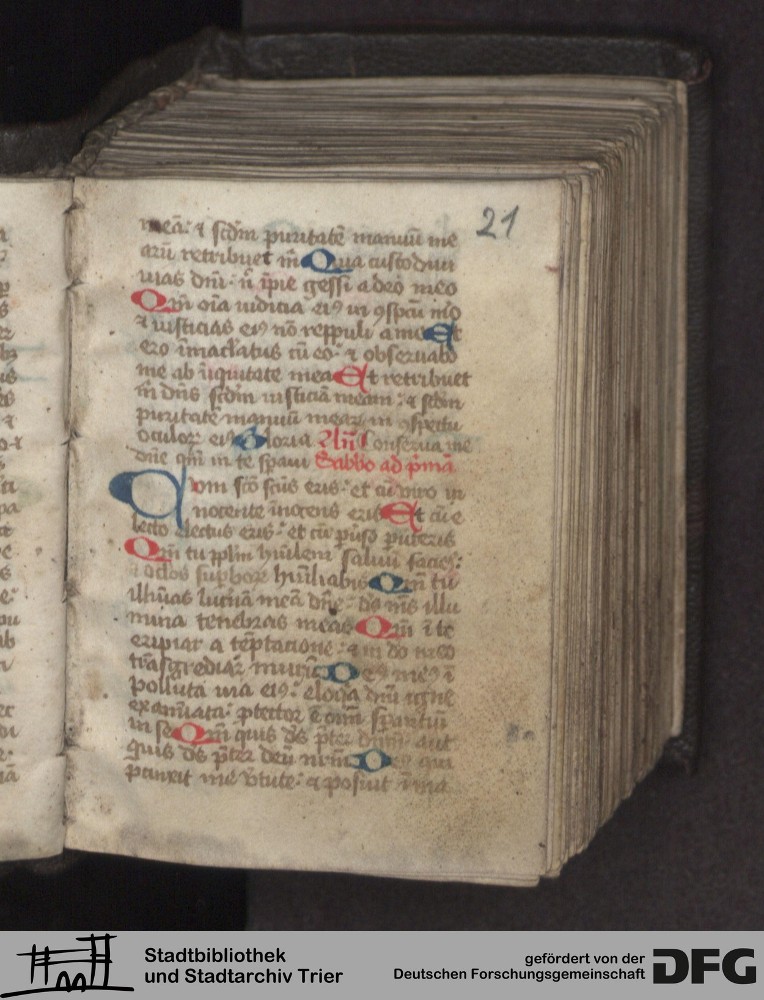 21
meā: ⁊ scdm puritatē manuū me
arū retribuet m̄ Quia custodiui
uias dnī: n̄ īpie gessi a deo meo
Qm̄ oīa iudicia eiꝰ in ꝯspcū mō
⁊ iusticias eiꝰ nō reppuli a me Et
ero īmacłatus cū eo: ⁊ obseruabo
me ab īiquitate mea Et retribuet
m̄ dn̄s scdm iusticiā meam: ⁊ scdm
puritatē manuū mearꝝ in ꝯspectu
oculorꝝ eiꝰ Gloria An̄ Conserua me
dn̄e qm̄ in te spaui Sabbo ad pͥmā
Cum sc̄o sc̄us eris: et cū uiro in
nocente īnocens eris Et cū e
lecto electus eris: et cū puso puteris
Qm̄ tu pplm humlem saluū facies:
⁊ oclos supborꝝ humiliabis Qm̄ tu
illuīas lucnā meā dn̄e: ds ms illu
mina tenebras meas Qm̄ ī te
eripiar a tēptacione: ⁊ in do meo
trāsgrediar murū Deꝰ meꝰ ī
polluta uia eiꝰ: eloq̄a dnī igne
examīata: ptector ē oīm sperantiū
in se Qm̄ quis ds pter dnm: aut
quis ds pter deū nrm̄ Deꝰ qui
pcinxit me vtute: ⁊ posuit īma
Stadtbibliothek
und Stadtarchiv Trier
gefördert von der
Deutschen Forschungsgemeinschaft
DFG